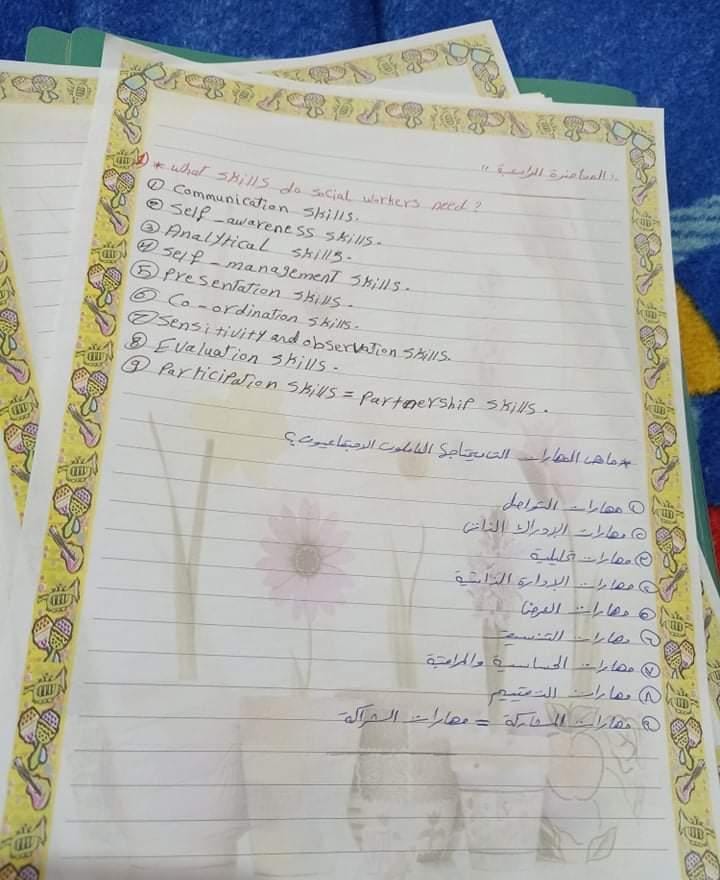 المحاضرة الرابعة "
1) * what skills do social workers need?
① Communication skills.
② Self-awareness skills.
③ Analytical skills.
④ Self-management skills.
⑤ Presentation skills.
⑥ Co-ordination skills.
⑦ Sensitivity and observation skills.
⑧ Evaluation skills.
⑨ Participation skills = partnership skills.
* ماهي المهارات التي يحتاجها العاملون الاجتماعيون؟
① مهارات التواصل
② مهارات الإدراك الذاتي
③ مهارات تحليلية
④ مهارات الإدارة الذاتية
⑤ مهارات العرض
⑥ مهارات التنسيق
⑦ مهارات الحساسية والمراقبة
⑧ مهارات التقييم
⑨ مهارات المشاركة = مهارات الشراكة